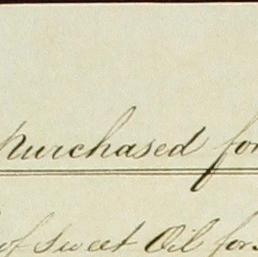 Purchased for
of Sweet Oil for